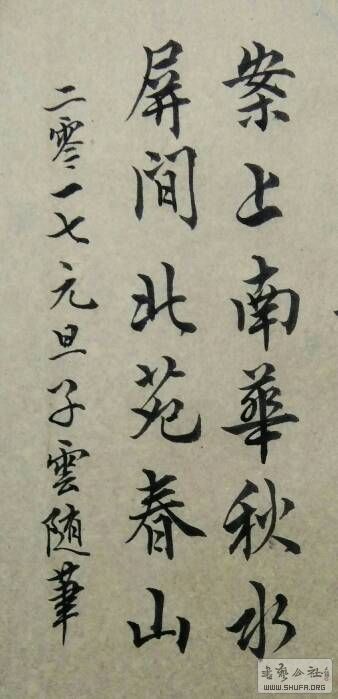 案上南華秋水
屏間北苑春山
二零一七元旦子雲随筆
书艺公社
WWW.SHUFA.ORG